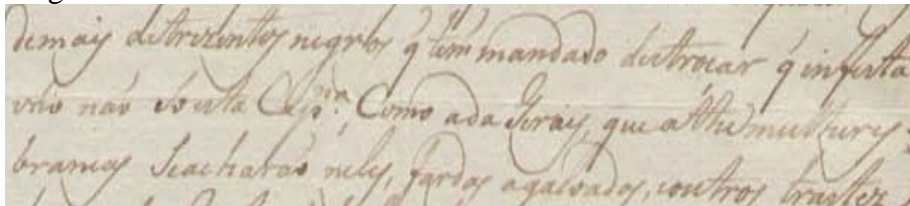 demais de trezentos negros q̃ tem mandado destroçar q̃ infesta
vão não só esta Cap.nia, Como a da Geraes, que athe mulheres
brancas Se acharaõ neles, fardas agaloadas, e outros trastez